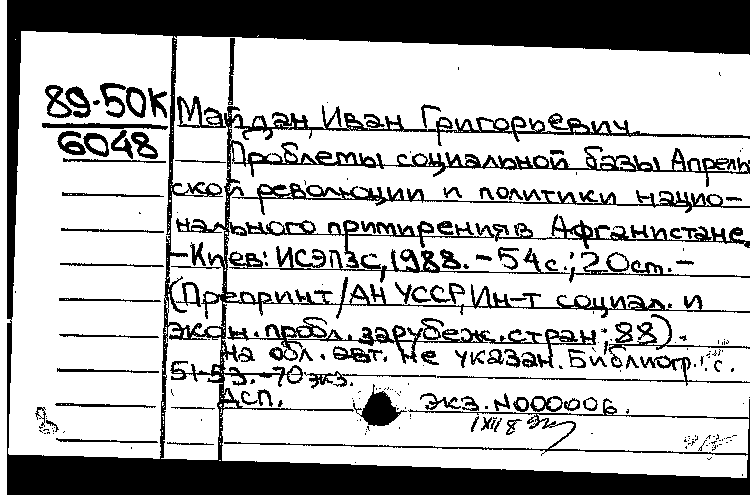 89-50К
6048
Майдан, Иван Григорьевич.
Проблемы социальной базы Апрель
ской революции и политики нацио-
нального примирения в Афганистане.
-Киев: ИСЭПЗС, 1988. - 54 с.; 20 cm. -
(Препринт/АН УССР, Ин-т социал. и
экон. пробл. зарубеж. стран; 88).
На обл. авт. не указан. Библиогр.: с.
51-53. - 70 экз.
ДСП. экз. N000006.